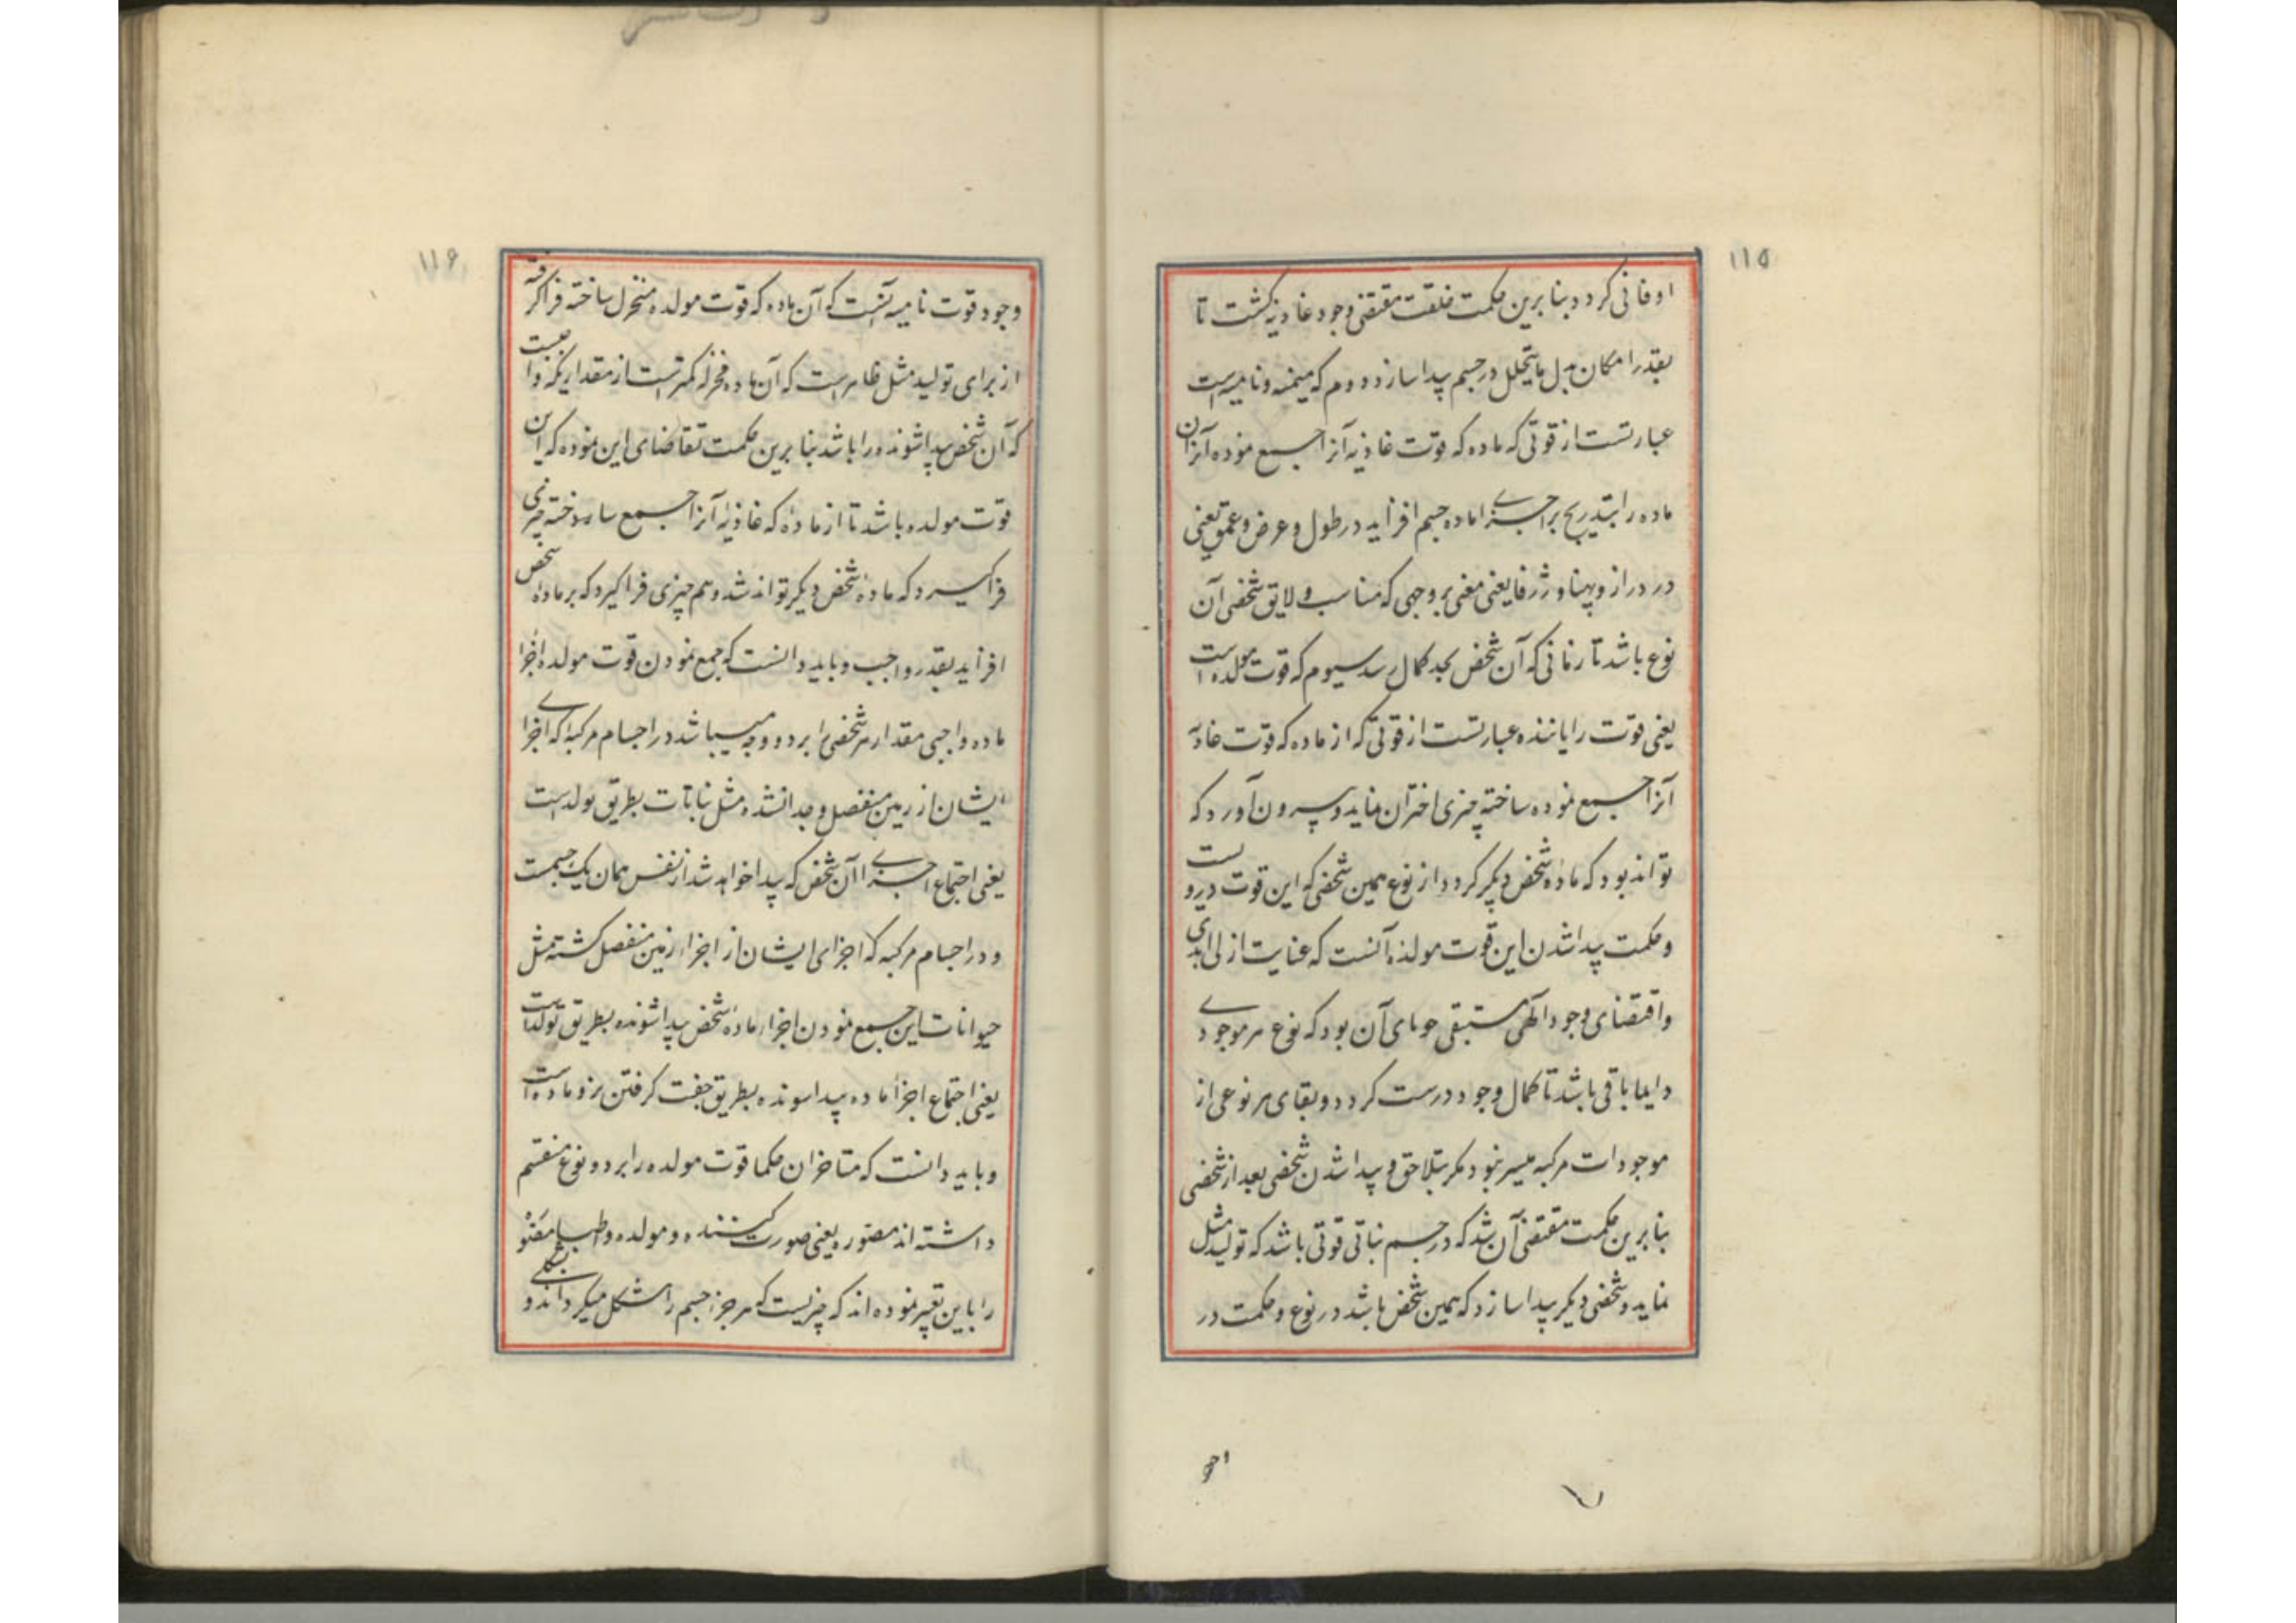 ۱۱۵
او فانی کردد بنا برین حکمت خلقت مقتضی وجود غاذیه کشت تا
بقدر امکان بدل ما یتحلل در جسم پیدا سازد دوم که منمیه و نامیه است
عبارتست از قوتی که ماده که قوت غاذیه آنرا جمع نموده آنزان
ماده را بتدریج بر اجزای ماده جسم افزاید در طول و عرض و عمق یعنی
در دراز و پهنا و ژرفا یعنی مغی بر وجهی که مناسب و لایق شخصی آن
نوع باشد تا زمانی که آن شخص بحد کمال رسد سیوم که قوت مولده است
یعنی قوت زایاننده عبارتست از قوتی که از ماده که قوت غاذیه
آنرا جمع نموده ساخته چیزی اختزان نماید و بیرون آورد که
تواند بود که ماده شخص دیکر کردد از نوع همین شخصی که این قوت دروست
و حکمت پیدا شدن این قوت مولده آنست که عنایت ازلی ابدی
واقتضای وجود آلهی مستبقی حومای آن بود که نوع هر موجودی
دایما باقی باشد تا کمال وجود درست کردد و بقای هر نوعی از
موجودات مرکبه میسر نبود مکر بتلاحق و پیدا شدن شخصی بعد از شخصی
بنا برین حکمت مقتضی آن شد که در جسم نباتی قوتی باشد که تولید مثل
نماید و شخصی دیکر پیدا سازد که همین شخص باشد در نوع و حکمت در
۱۱۶
وجود قوت نامیه آنست که آن ماده که قوت مولده منخزل ساخته فرا کرفته
از برای تولید مثل ظاهر است که آن ماده مخزله کمتر است از مقداریکه واجبست
که آن شخص پیدا شونده را باشد بنا برین حکمت تقاضای این نموده که این
قوت مولده باشد تا از ماده که غاذیه آنرا جمع ساخته چیزی
فرا کیرد که ماده شخص دیکر تواند شد و هم چیزی فرا کیرد که بر ماده شخص
افزاید بقدر واجب و باید دانست که جمع نمودن قوت مولده اجزا
ماده واجبی مقدار هر شخصی را بر دو وجه میباشد در اجسام مرکبه که اجزای
ایشان از زمین منفصل و جدا نشده مثل نباتات بطریق تولد است
یعنی اجتماع اجزای آن شخص که پیدا خواهد شد از نفس همان یک جسمت
و در اجسام مرکبه که اجزای ایشان از اجزاء زمین منفصل کشته مثل
حیوانات این جمع نمودن اجزاء ماده شخص پیدا شونده بطریق تولد است
یعنی اجتماع اجزا ماده پیدا سونده بطریق جفت کرفتن نر و ماده است
و باید دانست که متاخران حکما قوت مولده را بر دو نوع منقسم
داشته اند مصوره یعنی صورت کننده و مولده و اطبا مصوره
را باین تعبیر نموده اند که چیزیست که هر جزء جسم را مشکل میکرداند و